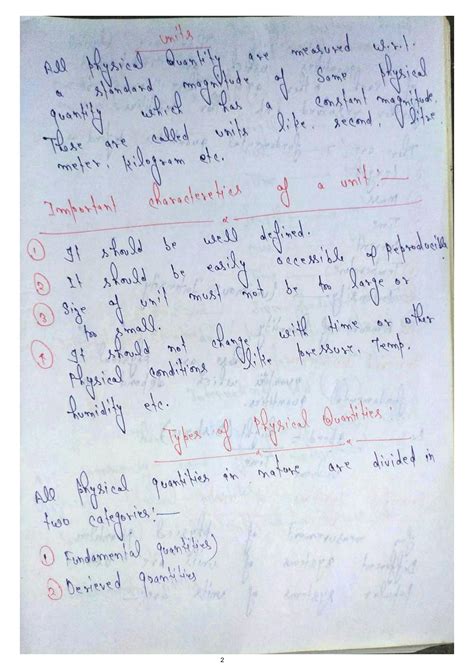 units
All physical Quantity are measured w.r.t.
a standard magnitude of Some physical
quantity which has a constant magnitude.
These are called units like. second, litre
meter, kilogram etc.
Important characteretics of a unit:-
① It should be well defined.
② It should be easily accessible & Reproducible
③ Size of unit must not be too large or
too small.
④ It should not change with time or other
Physical conditions like pressure, Temp.
humidity etc.
Types of Physical Quantities:
All physical quantities in nature are divided in
two categories:-
① Fundamental quantities)
② Derieved quantities
2